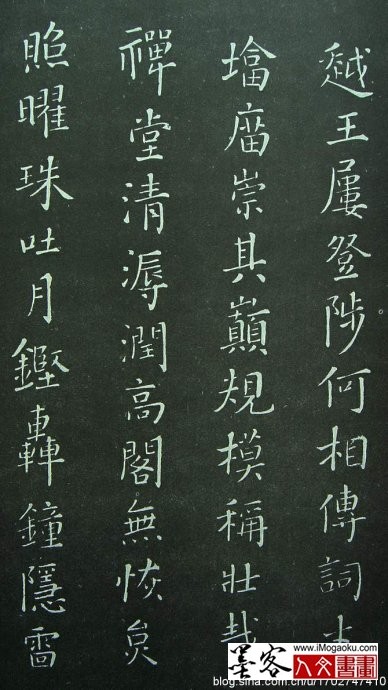 越王屢登陟何相傳詞
墖庿崇其巔規模稱壯哉
禪堂清溽潤高閣無恢炱
照曜珠吐月鏗轟鐘隱雷
墨客 www.iMogaoku.com
人文書畫
blog.sina.com.cn/u/1702747410